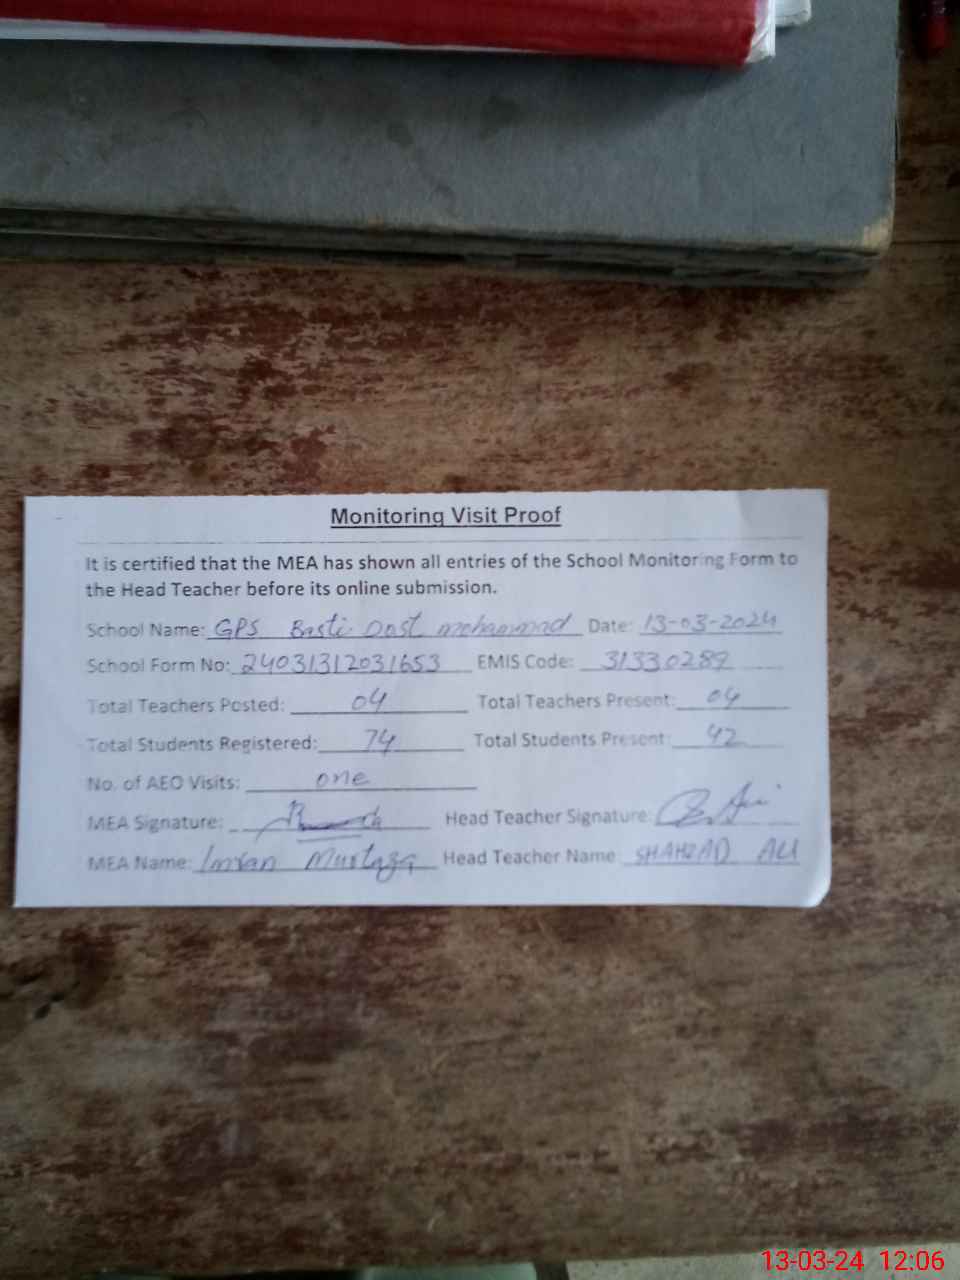 Monitoring Visit Proof
It is certified that the MEA has shown all entries of the School Monitoring Form to
the Head Teacher before its online submission.
School Name: GPS Basti Dost mohammad Date: 13-03-2024
School Form No: 24031312031653 EMIS Code: 31330289
Total Teachers Posted: 04 Total Teachers Present: 04
Total Students Registered: 74 Total Students Present: 42
No. of AEO Visits: one
MEA Signature: Head Teacher Signature:
MEA Name: Imran Murtaza Head Teacher Name SHAHZAD ALI
13-03-24 12:06